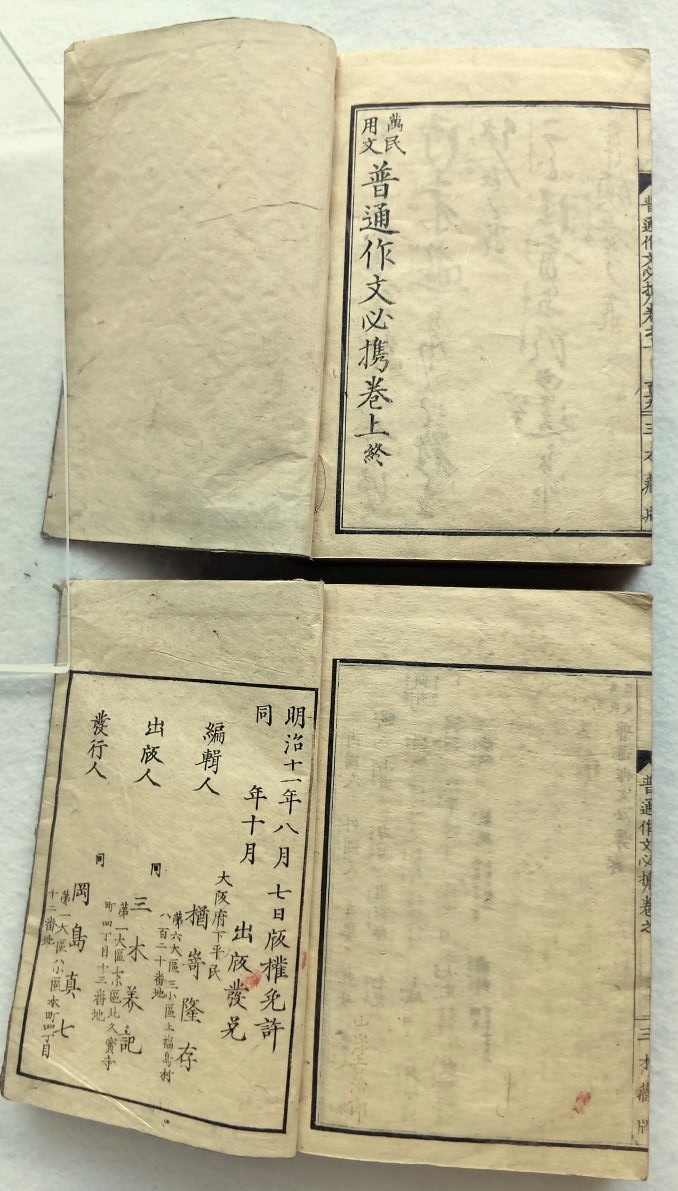 萬民
用文
普通作文必携卷上終
普通作文必携卷之
三木藏版
明治十一年八月七日版權免許
同年十月出版發兌
大阪府下平民
編輯人 楢嵜隆存
第六大區三小區上福島村
八百二十番地
出版人 同 三木美記
第一大區七小區北久寳寺
町四丁目十三番地
發行人 同 岡島真七
第一大區八小區本町四丁目
十二番地
普通作文必携卷之
三木藏版